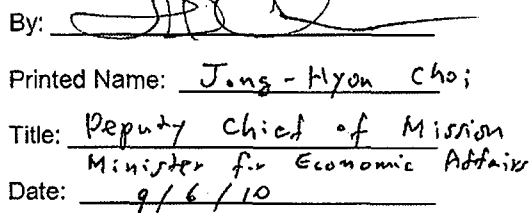 By:
Printed Name: Jong-Hyon Choi
Title: Deputy Chief of Mission
Minister for Economic Affairs
Date: 9/6/10